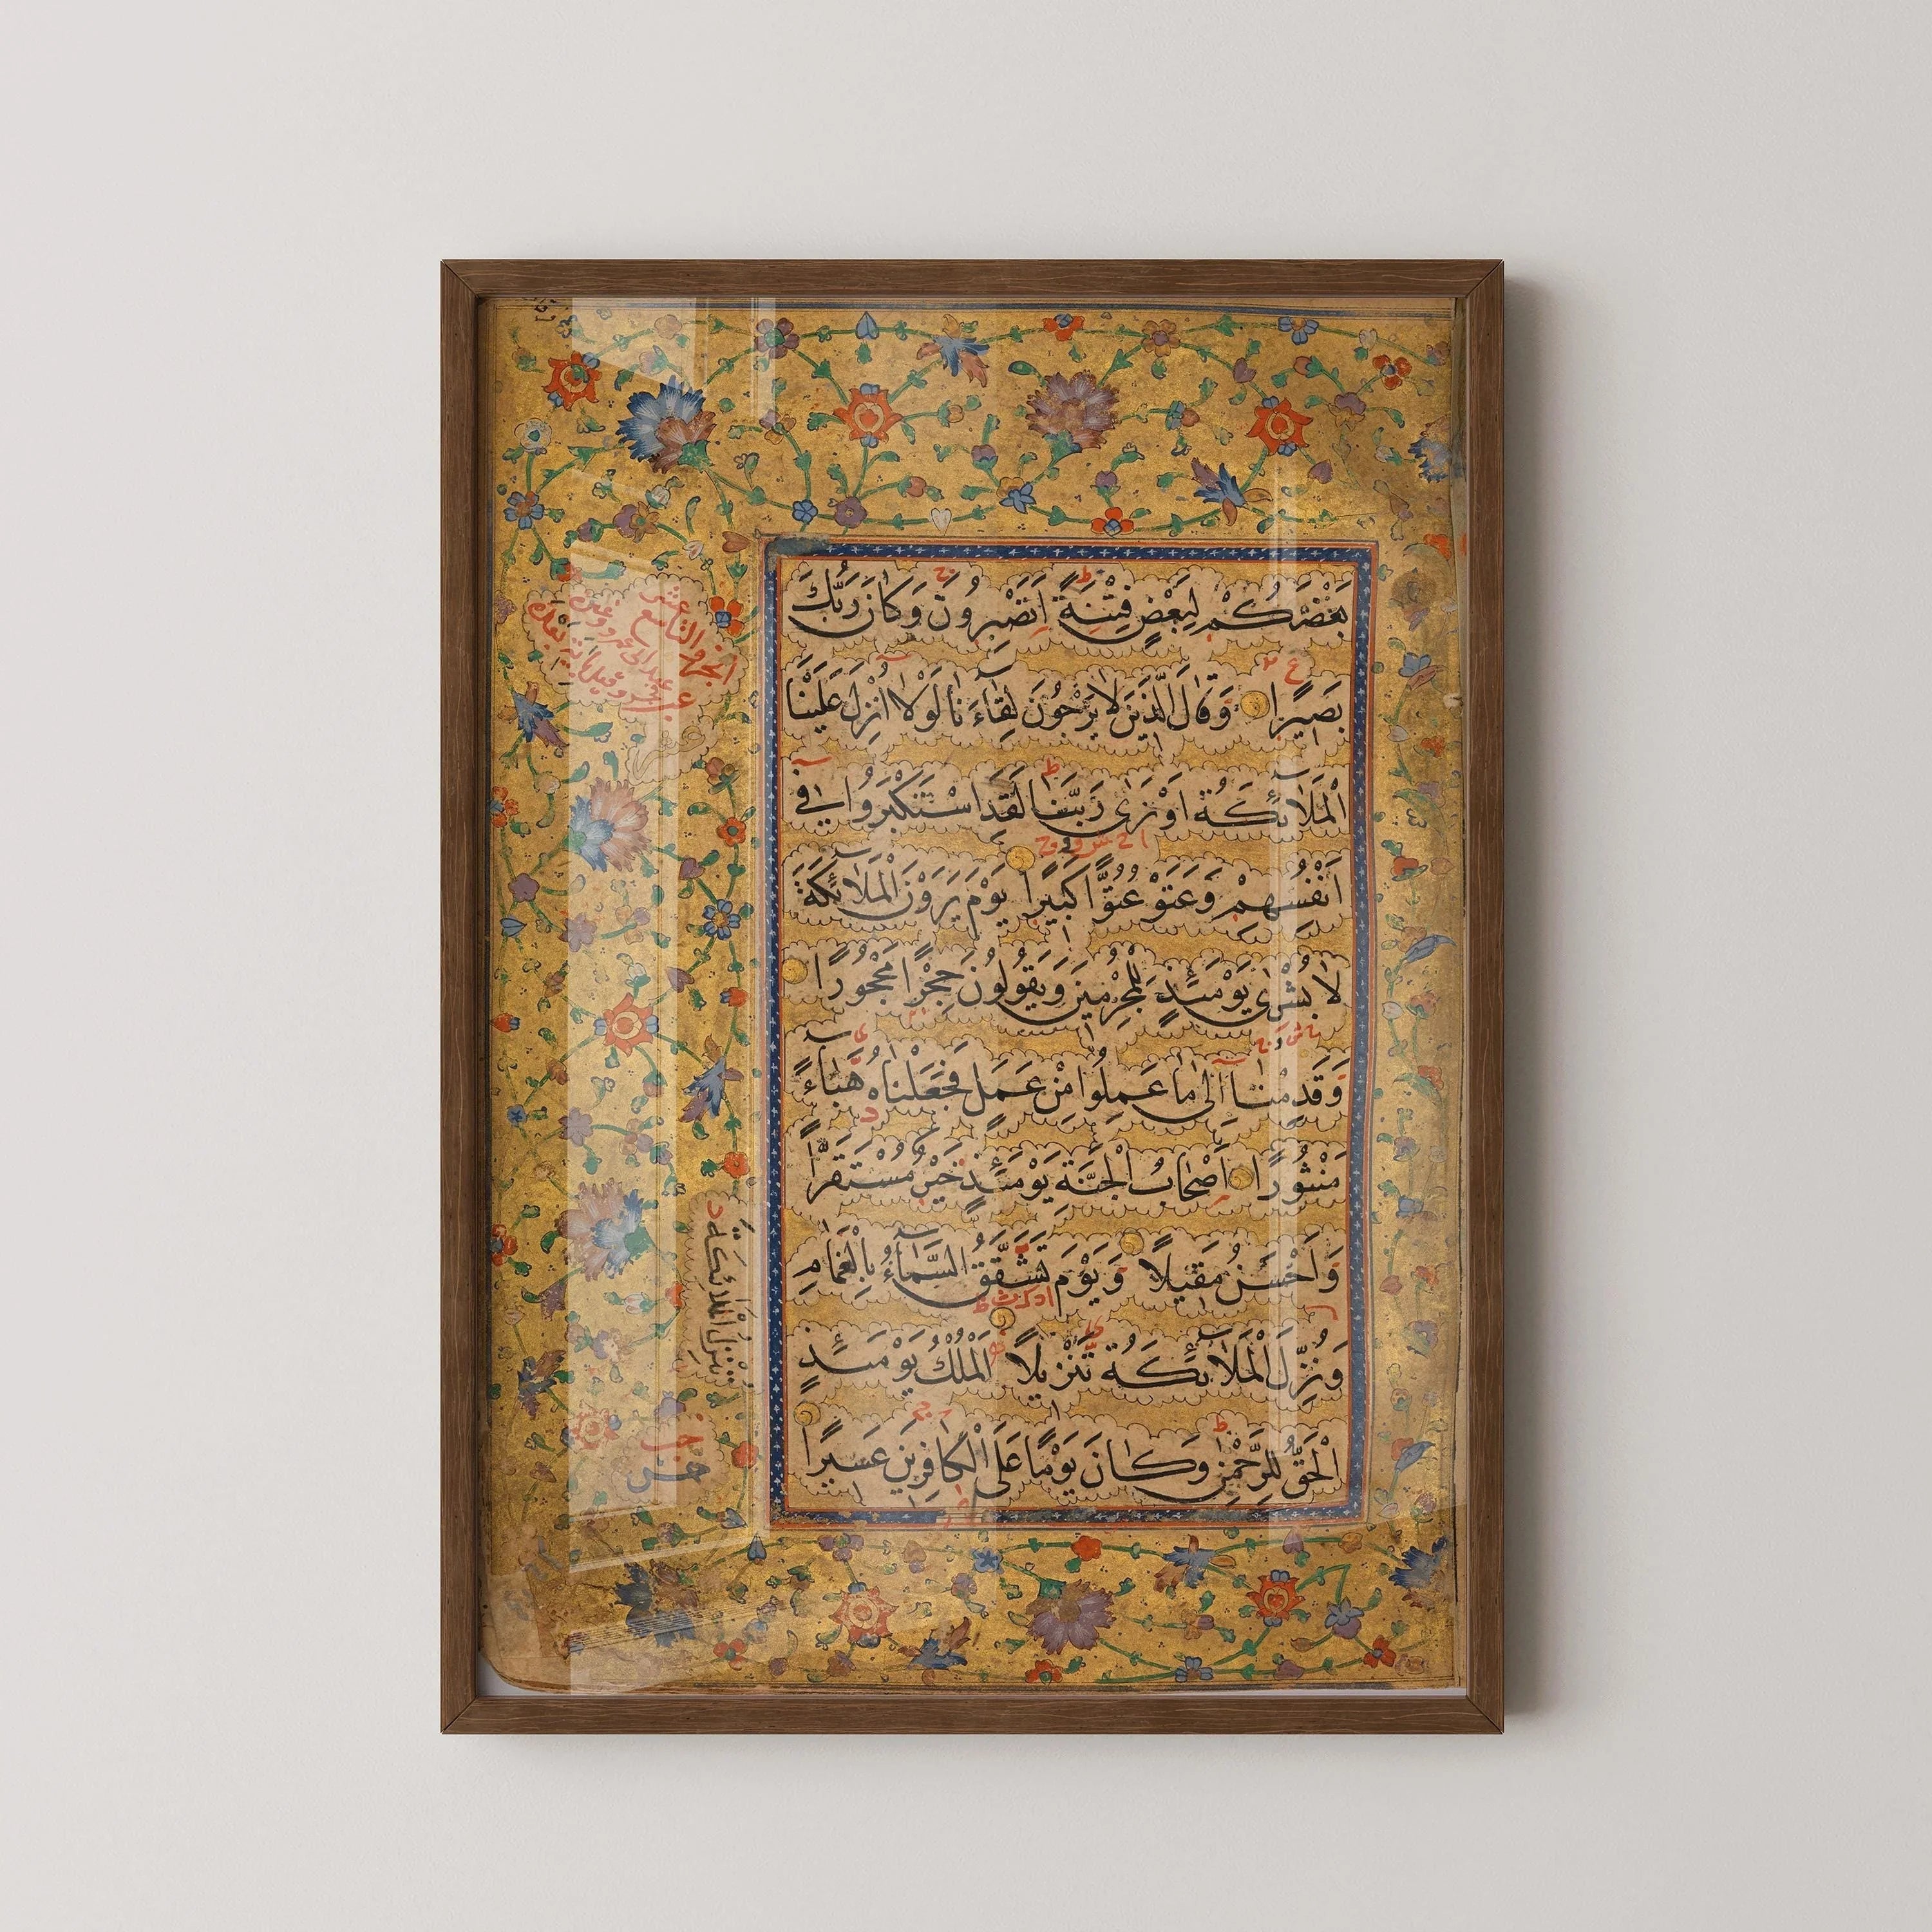 بَعْضَكُمْ لِبَعْضٍ فِتْنَةً اَتَصْبِرُونَ وَكَانَ رَبُّكَ
بَصِيرًا وَقَالَ الَّذِينَ لَا يَرْجُونَ لِقَاءَنَا لَوْلَا اُنْزِلَ عَلَيْنَا
الْمَلَائِكَةُ اَوْ نَرٰى رَبَّنَا لَقَدِ اسْتَكْبَرُوا فِي
اَنْفُسِهِمْ وَعَتَوْ عُتُوًّا كَبِيرًا يَوْمَ يَرَوْنَ الْمَلَائِكَةَ
لَا بُشْرٰى يَوْمَئِذٍ لِلْمُجْرِمِينَ وَيَقُولُونَ حِجْرًا مَحْجُورًا
وَقَدِمْنَا اِلٰى مَا عَمِلُوا مِنْ عَمَلٍ فَجَعَلْنَاهُ هَبَاءً
مَنْثُورًا اَصْحَابُ الْجَنَّةِ يَوْمَئِذٍ خَيْرٌ مُسْتَقَرًّا
وَاَحْسَنُ مَقِيلًا وَيَوْمَ تَشَقَّقُ السَّمَاءُ بِالْغَمَامِ
وَنُزِّلَ الْمَلَائِكَةُ تَنْزِيلًا اَلْمُلْكُ يَوْمَئِذٍ
الْحَقُّ لِلرَّحْمٰنِ وَكَانَ يَوْمًا عَلَى الْكَافِرِينَ عَسِيرًا
الجزو التاسع عشر